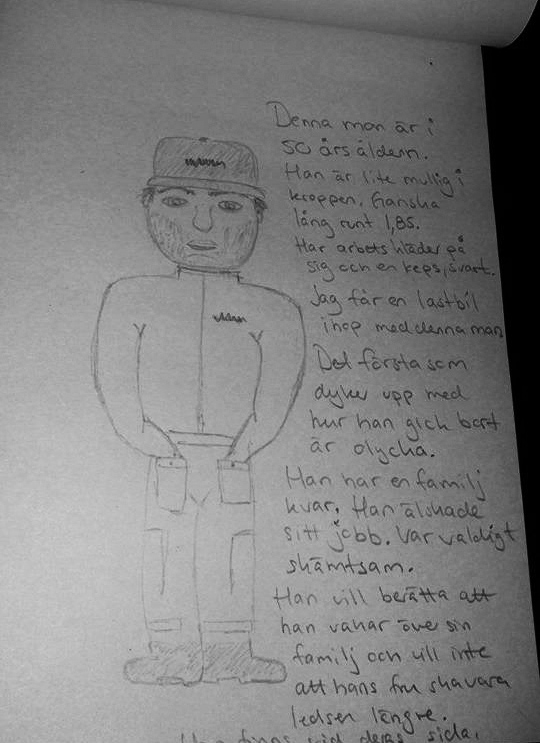 Denna man är i
50 års åldern.
Han är lite mullig i
kroppen. Ganska
lång runt 1,85.
Har arbets kläder på
sig och en keps, svart.
Jag får en lastbil
ihop med denna man
Det första som
dyker upp med
hur han gick bort
är olycka.
Han har en familj
kvar. Han älskade
sitt jobb. Var väldigt
skämtsam.
Han vill berätta att
han vakar över sin
familj och vill inte
att hans fru ska vara
ledsen längre.
Han finns vid deras sida.